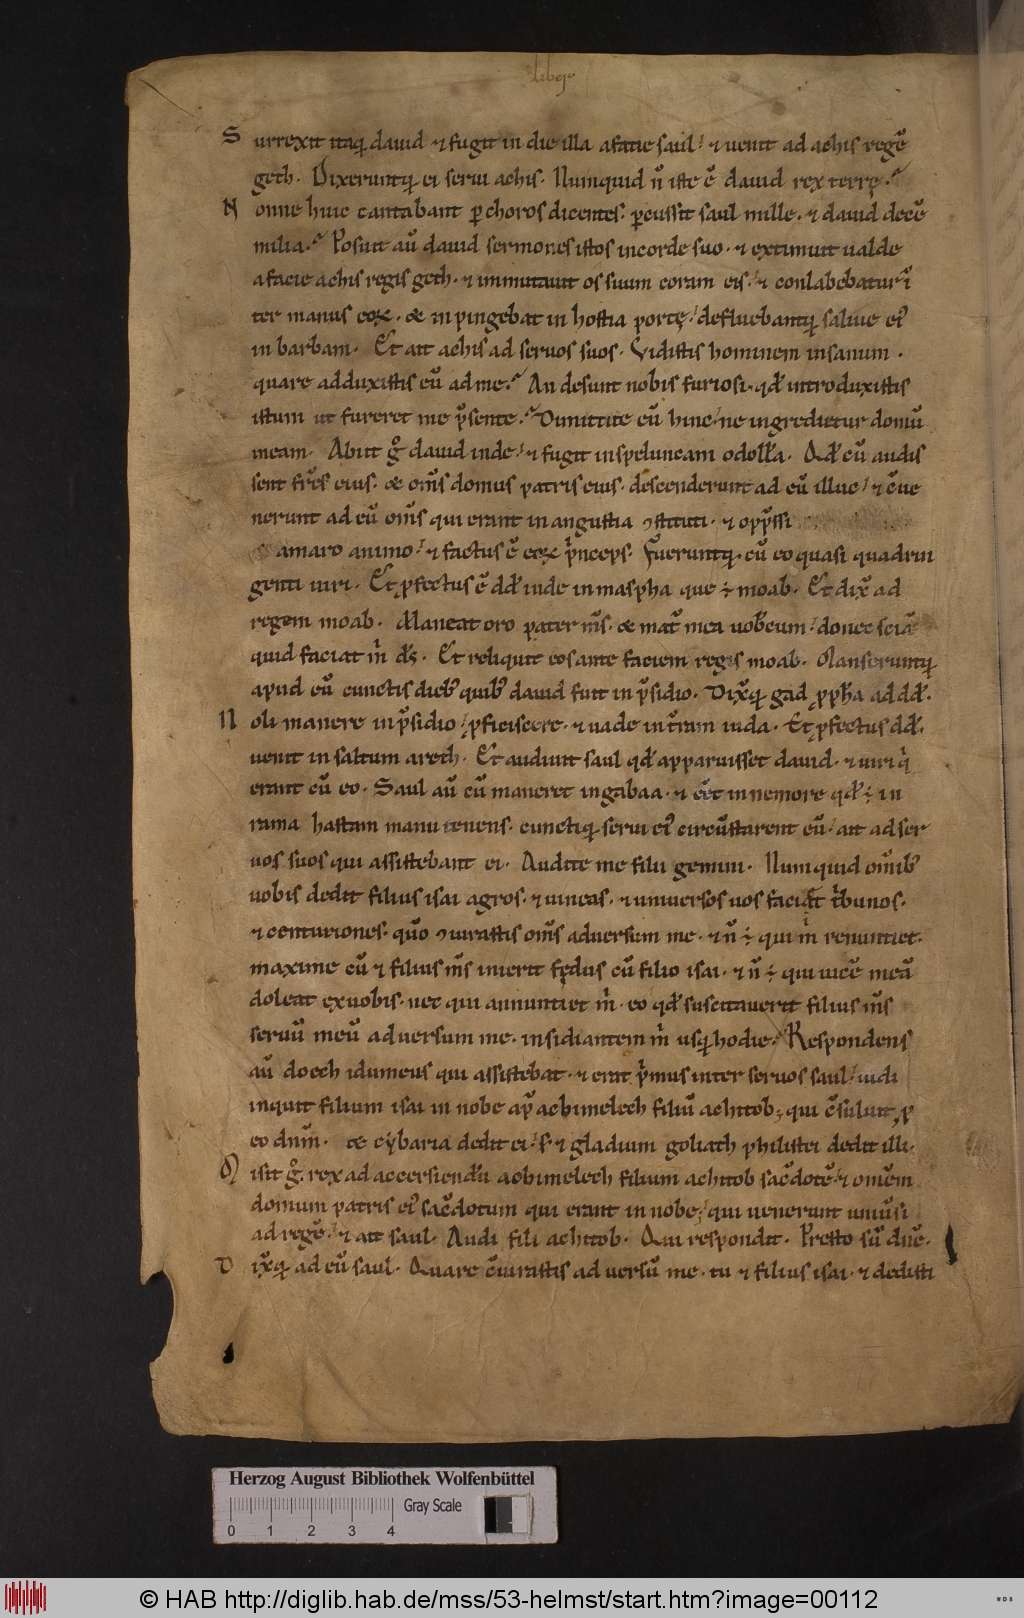 liber
Surrexit itaq; dauid ⁊ fugit in die illa a facie saul / ⁊ uenit ad achis regē
geth. Dixeruntq; ei serui achis. Numquid n̄ iste ē dauid rex terrę.
Nonne huic cantabant p choros dicentes. pcussit saul mille. ⁊ dauid decē
milia. Posuit aū dauid sermones istos in corde suo. ⁊ extimuit ualde
a facie achis regis geth. ⁊ immutauit os suum coram eis / ⁊ conlabebatur ī
ter manus eoꝝ. & inpingebat in hostia portę / defluebantq; saliue ei᾿
in barbam. Et ait achis ad seruos suos. Vidistis hominem insanum.
quare adduxistis eū ad me. An desunt nobis furiosi. qd̄ introduxistis
istum ut fureret me p̄sente. Dimittite eū hinc / ne ingrediatur domū
meam. Abiit gͦ dauid inde / ⁊ fugit in speluncam odollā. Qd̄ cū audis
sent frēs eius. & om̄s domus patris eius. descenderunt ad eū illuc / ⁊ ꝯue
nerunt ad eū om̄s qui erant in angustia ꝯstituti. ⁊ opp̄ssi
amaro animo / ⁊ factus ē eoꝝ p̄nceps. Fueruntq; cū eo quasi quadrin
genti uiri. Et pfectus ē dd̄ inde in maspha que ÷ moab. Et dix̄ ad
regem moab. Maneat oro pater m̄s. & mat̄ mea uobcum / donec sciā
quid faciat m̄ ds̄. Et reliquit eos ante faciem regis moab. Manseruntq;
apud eū cunctis dieb; quib; dauid fuit in p̄sidio. Dix̄q; gad pph̄a ad dd̄.
Noli manere in p̄sidio / pficiscere. ⁊ uade in t̄ram iuda. Et pfectus dd̄.
uenit in saltum areth. Et audiuit saul qd̄ apparuisset dauid. ⁊ uiri q̄
erant cū eo. Saul aū cū maneret in gabaa. ⁊ eēt in nemore qd̄ ÷ in
rama hastam manu tenens. cunctiq; serui ei᾿ circūstarent eū / ait ad ser
uos suos qui assistebant ei. Audite me filii gemini. Numquid om̄ib;
uobis dedit filius isai agros. ⁊ uineas. ⁊ uniuersos uos faciet t̄bunos.
⁊ centuriones. quō ꝯiurastis om̄s aduersum me. ⁊ n̄ ÷ qui m̄ renuntiet.
maxime cū ⁊ filius m̄s inierit fędus cū filio isai. ⁊ n̄ ÷ qui uicē meā
doleat ex uobis. nec qui annuntiet m̄. eo qd̄ suscitauerit filius m̄s
seruū meū aduersum me. insidiantem m̄ usq; hodie. Respondens
aū doech idumeus qui assistebat. ⁊ erat p̄mus inter seruos saul / uidi
inquit filium isai in nobe ap̄ achimelech filiū achitob, qui ꝯsuluit p
eo dn̄m. ⁊ cybaria dedit ei / s. ⁊ gladium goliath philistei dedit illi.
Misit gͦ rex ad accersiendū achimelech filium achitob sac̄dotē / ⁊ omēm
domum patris ei᾿ sac̄dotum qui erant in nobe / qui uenerunt uniūsi
ad regē / ⁊ ait saul. Audi fili achitob. Qui respondit. Presto sū dn̄e.
Dix̄q; ad eū saul. Quare ꝯiurastis aduersū me. tu ⁊ filius isai. ⁊ dedisti
Herzog August Bibliothek Wolfenbüttel
Gray Scale
0 1 2 3 4
© HAB http://diglib.hab.de/mss/53-helmst/start.htm?image=00112